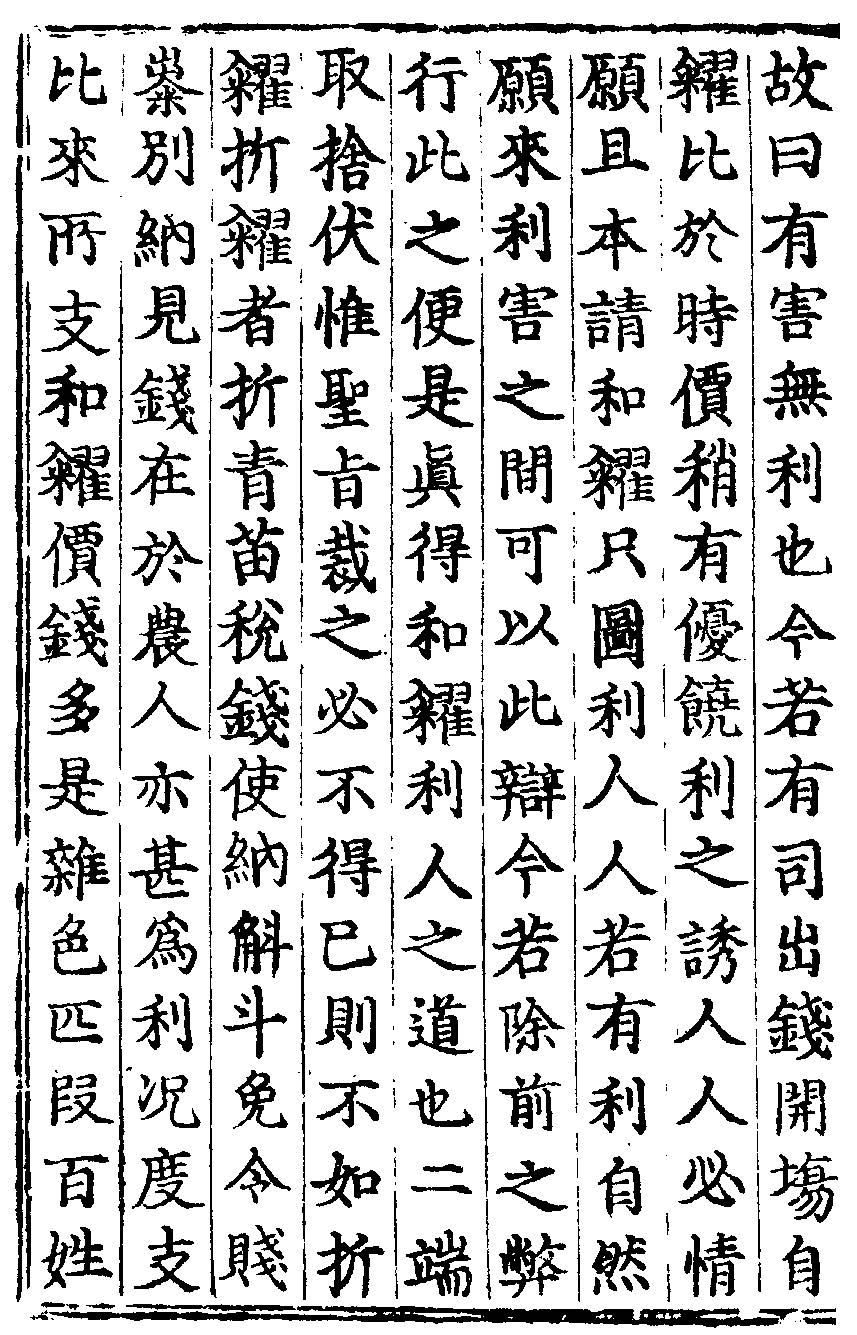 故曰有害無利也今若有司出錢開塲自
糴比於時價稍有優饒利之誘人人必情
願且本請和糴只圖利人人若有利自然
願來利害之間可以此辯今若除前之弊
行此之便是眞得和糴利人之道也二端
取捨伏惟聖旨裁之必不得已則不如折
糴折糴者折青苗稅錢使納斛斗免令賤
糶別納見錢在於農人亦甚爲利况度支
比來所支和糴價錢多是雜色匹段百姓